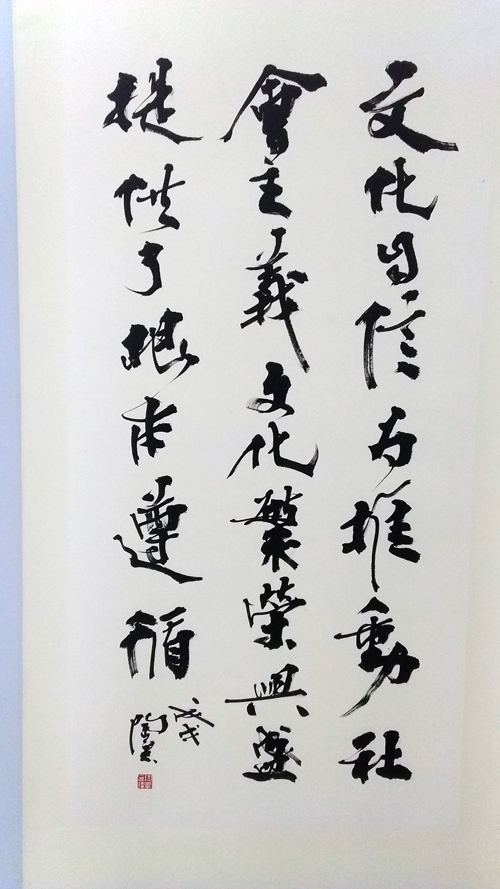 文化自信为推動社
會主義文化繁荣興盛
提供了根本遵循
戊戌